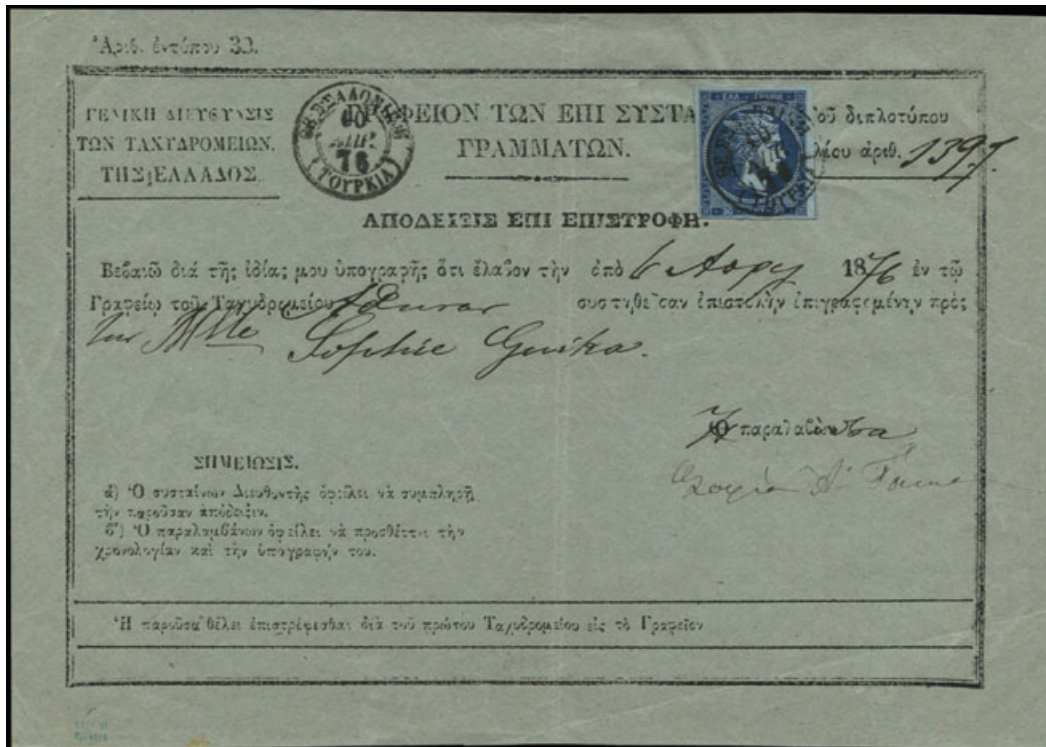 Ἀριθ. ἐντύπου 39.
ΓΕΝΙΚΗ ΔΙΕΥΘΥΝΣΙΣ
ΤΩΝ ΤΑΧΥΔΡΟΜΕΙΩΝ.
ΤΗΣ ΕΛΛΑΔΟΣ
(ΤΟΥΡΚΙΑ)
76
ΓΡΑΦΕΙΟΝ ΤΩΝ ΕΠΙ ΣΥΣΤΑ
ΓΡΑΜΜΑΤΩΝ.
οῦ διπλοτύπου
ἀριθ. 1397.
ΑΠΟΔΕΙΞΙΣ ΕΠΙ ΕΠΙΣΤΡΟΦΗ.
Βεβαιῶ διά τῆς ἰδίας μου ὑπογραφῆς ὅτι ἔλαβον τὴν ἀπό 6 1876 ἐν τῷ
Γραφείῳ τοῦ Ταχυδρομείου συστηθεῖσαν ἐπιστολὴν ἐπιγεγραμμένην πρὸς
την Mlle Sophie Guika.
Ὁ παραλαβὼν
ΣΗΜΕΙΩΣΙΣ.
α) Ὁ συσταίνων Διευθυντὴς ὀφείλει νὰ συμπληρῇ
τὴν παροῦσαν ἀπόδειξιν.
β') Ὁ παραλαμβάνων ὀφείλει νὰ προσθέττῃ τὴν
χρονολογίαν καὶ τὴν ὑπογραφήν του.
Ἡ παροῦσα θέλει ἐπιστρέφεσθαι διὰ τοῦ πρώτου Ταχυδρομείου εἰς τὸ Γραφεῖον